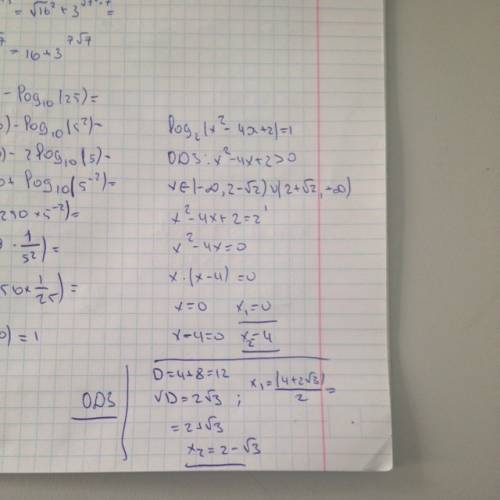 = √16² + 3^√7·7 =
= 16 + 3^7√7
- log₁₀(25) =
) - log₁₀(5²) -
) - 2log₁₀(5) -
+ log₁₀(5⁻²) =
250 × 5⁻²) =
· 1/5²) =
50 × 1/25) =
0) = 1
log₂(x² - 4x + 2) = 1
ODЗ: x² - 4x + 2 > 0
x ∈ (-∞, 2 - √2) ∪ (2 + √2, +∞)
x² - 4x + 2 = 2¹
x² - 4x = 0
x · (x - 4) = 0
x = 0 x₁ = 0
x - 4 = 0 x₂ = 4
ODЗ
D = 4 + 8 = 12
√D = 2√3 ; x₁ = (4 + 2√3)/2 =
= 2 + √3
x₂ = 2 - √3